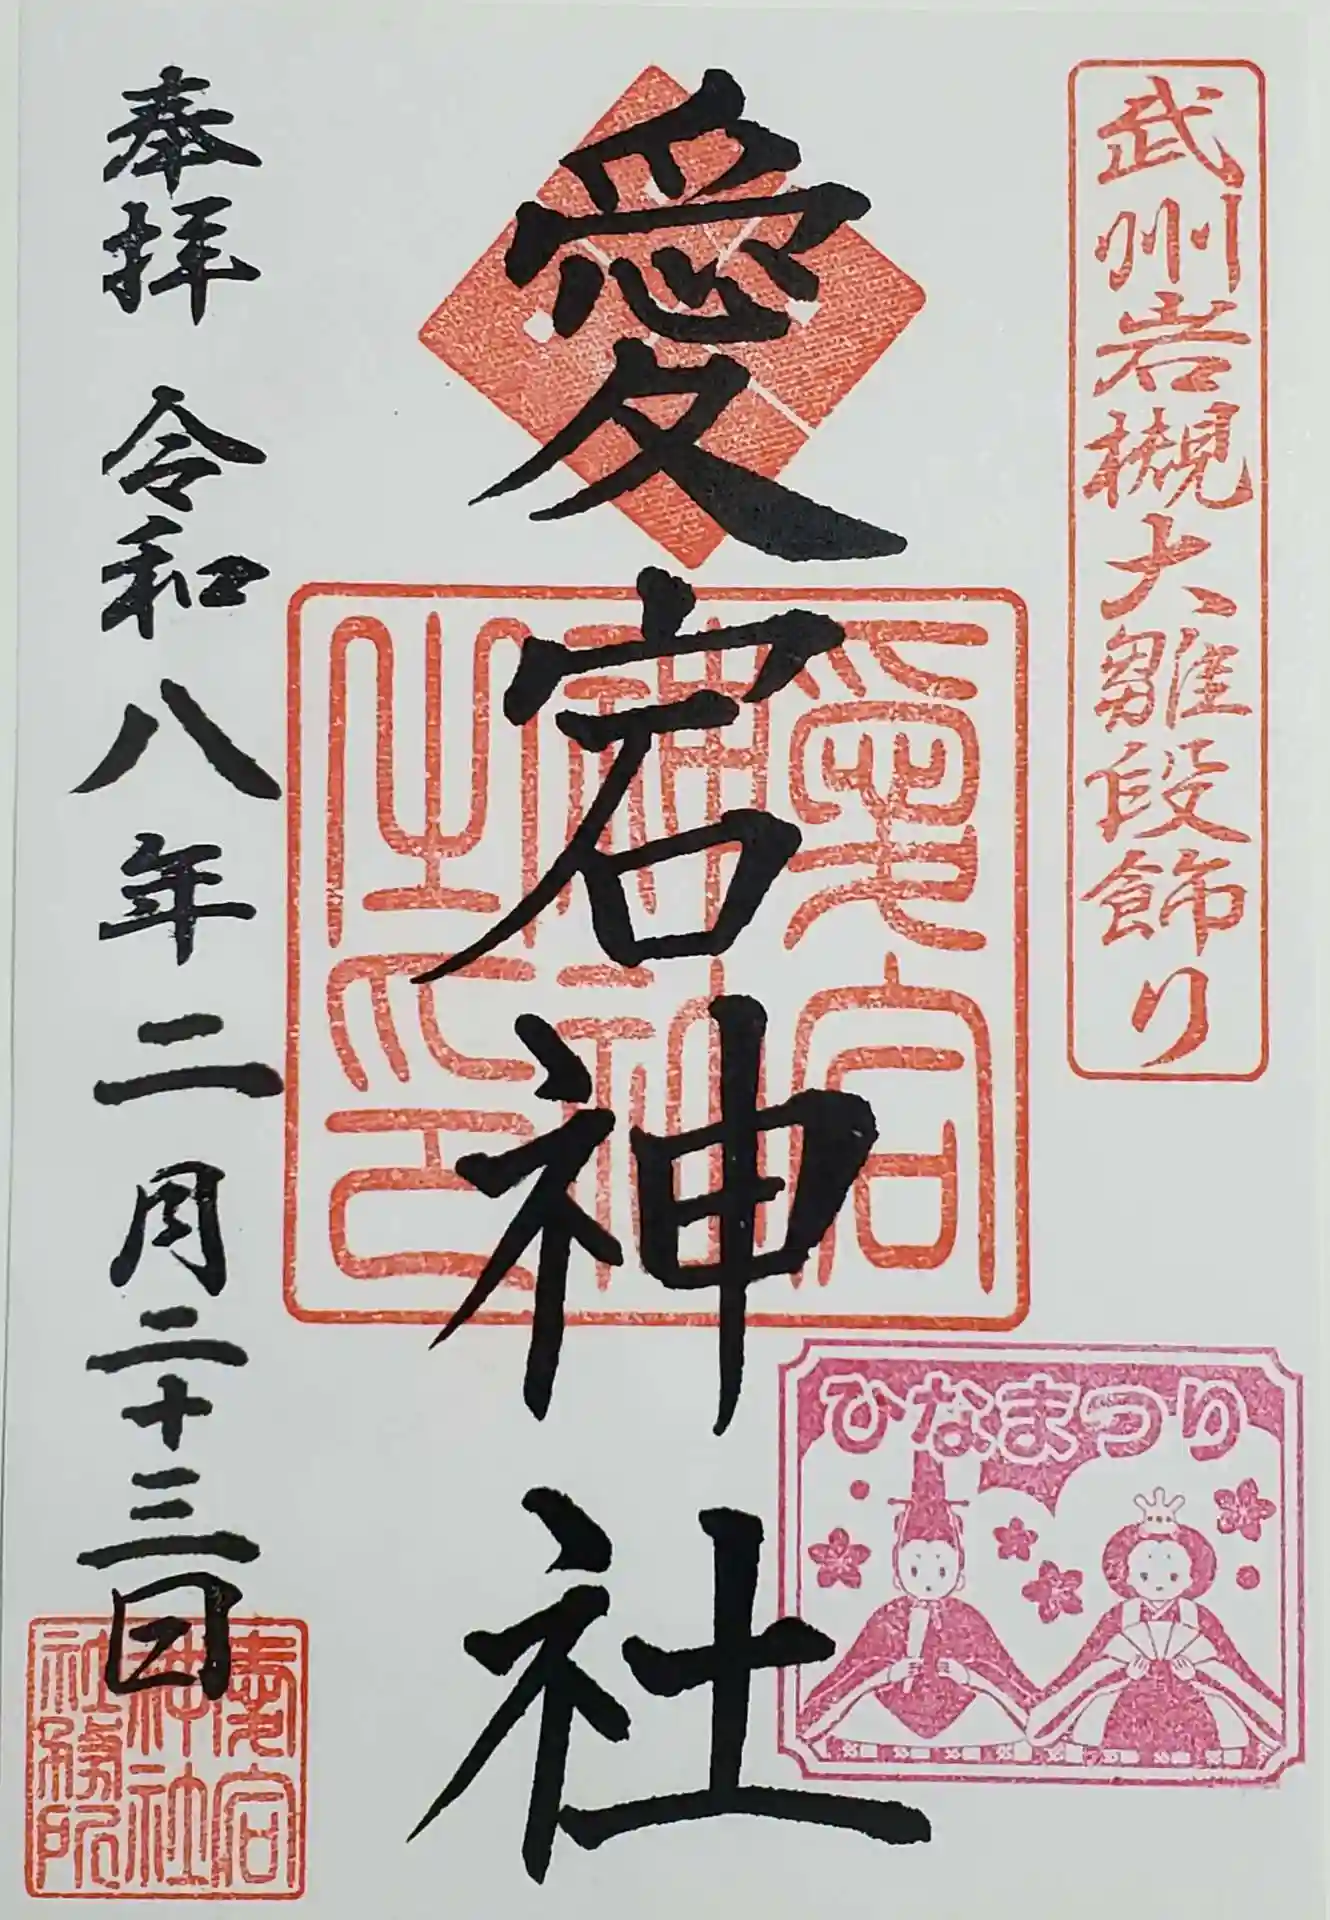 武州岩槻大雛段飾り
愛宕神社
愛宕
神社
之印
奉拝 令和八年二月二十三日
ひなまつり
愛宕
神社
社務所